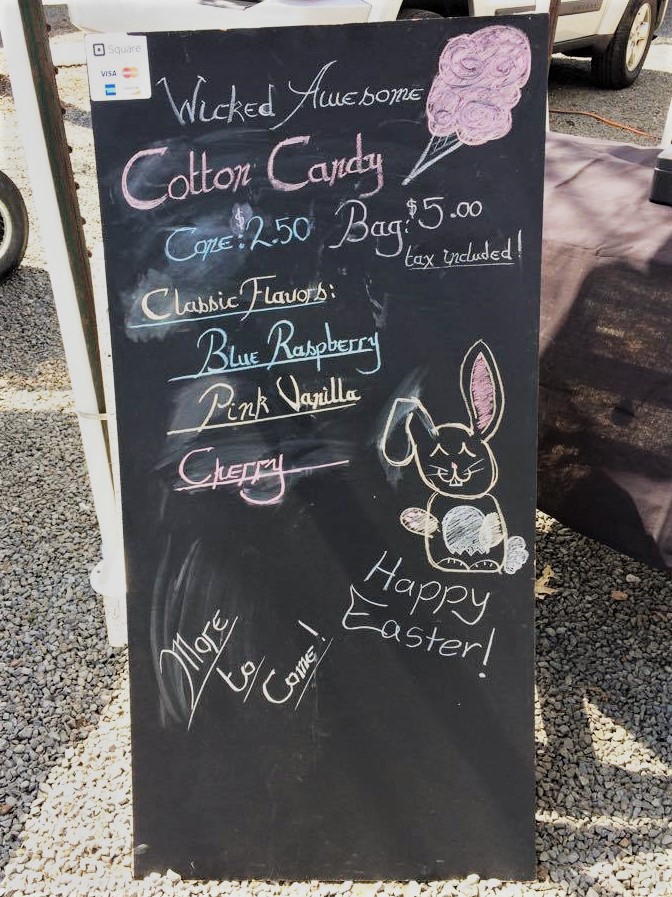 Square
VISA
Wicked Awesome
Cotton Candy
Cone: $2.50 Bag: $5.00
tax included!
Classic Flavors:
Blue Raspberry
Pink Vanilla
Cherry
Happy
Easter!
More
to
Come!